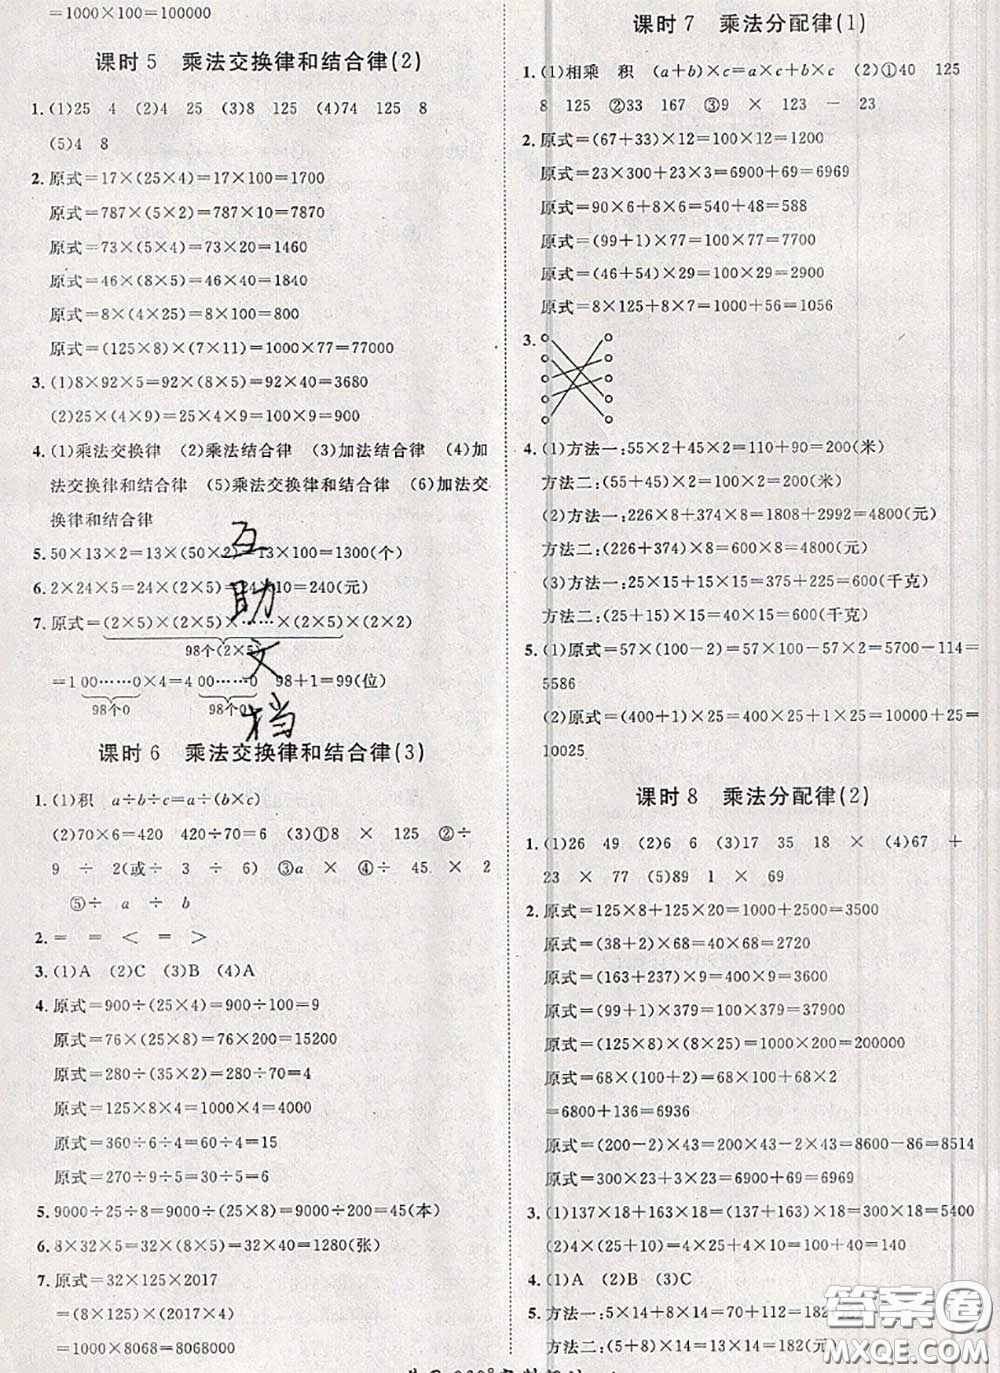 =1000×100=100000
课时5 乘法交换律和结合律(2)
1. (1)25 4 (2)4 25 (3)8 125 (4)74 125 8
(5)4 8
2. 原式=17×(25×4)=17×100=1700
原式=787×(5×2)=787×10=7870
原式=73×(5×4)=73×20=1460
原式=46×(8×5)=46×40=1840
原式=8×(4×25)=8×100=800
原式=(125×8)×(7×11)=1000×77=77000
3. (1)8×92×5=92×(8×5)=92×40=3680
(2)25×(4×9)=25×4×9=100×9=900
4. (1)乘法交换律 (2)乘法结合律 (3)加法结合律 (4)加
法交换律和结合律 (5)乘法交换律和结合律 (6)加法交
换律和结合律
5. 50×13×2=13×(50×2)=13×100=1300(个)
6. 2×24×5=24×(2×5)=24×10=240(元)
7. 原式=(2×5)×(2×5)×……×(2×5)×(2×2)
98个(2×5)
=1 00……0×4=4 00……0 98+1=99(位)
98个0 98个0
互助文档
课时6 乘法交换律和结合律(3)
1. (1)积 a÷b÷c=a÷(b×c)
(2)70×6=420 420÷70=6 (3)①8 × 125 ②÷
9 ÷ 2(或÷ 3 ÷ 6) ③a × ④÷ 45 × 2
⑤÷ a ÷ b
2. = = < = >
3. (1)A (2)C (3)B (4)A
4. 原式=900÷(25×4)=900÷100=9
原式=76×(25×8)=76×200=15200
原式=280÷(35×2)=280÷70=4
原式=125×8×4=1000×4=4000
原式=360÷6÷4=60÷4=15
原式=270÷9÷5=30÷5=6
5. 9000÷25÷8=9000÷(25×8)=9000÷200=45(本)
6. 8×32×5=32×(8×5)=32×40=1280(张)
7. 原式=32×125×2017
=(8×125)×(2017×4)
=1000×8068=8068000
课时7 乘法分配律(1)
1. (1)相乘 积 (a+b)×c=a×c+b×c (2)①40 125
8 125 ②33 167 ③9 × 123 － 23
2. 原式=(67+33)×12=100×12=1200
原式=23×300+23×3=6900+69=6969
原式=90×6+8×6=540+48=588
原式=(99+1)×77=100×77=7700
原式=(46+54)×29=100×29=2900
原式=8×125+8×7=1000+56=1056
3.
4. (1)方法一:55×2+45×2=110+90=200(米)
方法二:(55+45)×2=100×2=200(米)
(2)方法一:226×8+374×8=1808+2992=4800(元)
方法二:(226+374)×8=600×8=4800(元)
(3)方法一:25×15+15×15=375+225=600(千克)
方法二:(25+15)×15=40×15=600(千克)
5. (1)原式=57×(100-2)=57×100-57×2=5700-114=
5586
(2)原式=(400+1)×25=400×25+1×25=10000+25=
10025
课时8 乘法分配律(2)
1. (1)26 49 (2)6 6 (3)17 35 18 × (4)67 +
23 × 77 (5)89 1 × 69
2. 原式=125×8+125×20=1000+2500=3500
原式=(38+2)×68=40×68=2720
原式=(163+237)×9=400×9=3600
原式=(99+1)×379=100×379=37900
原式=(125×8)×(8×25)=1000×200=200000
原式=68×(100+2)=68×100+68×2
=6800+136=6936
原式=(200-2)×43=200×43-2×43=8600-86=8514
原式=23×300+3×23=6900+69=6969
3. (1)137×18+163×18=(137+163)×18=300×18=5400
(2)4×(25+10)=4×25+4×10=100+40=140
4. (1)A (2)B (3)C
5. 方法一:5×14+8×14=70+112=182(元)
方法二:(5+8)×14=13×14=182(元)
答案圈